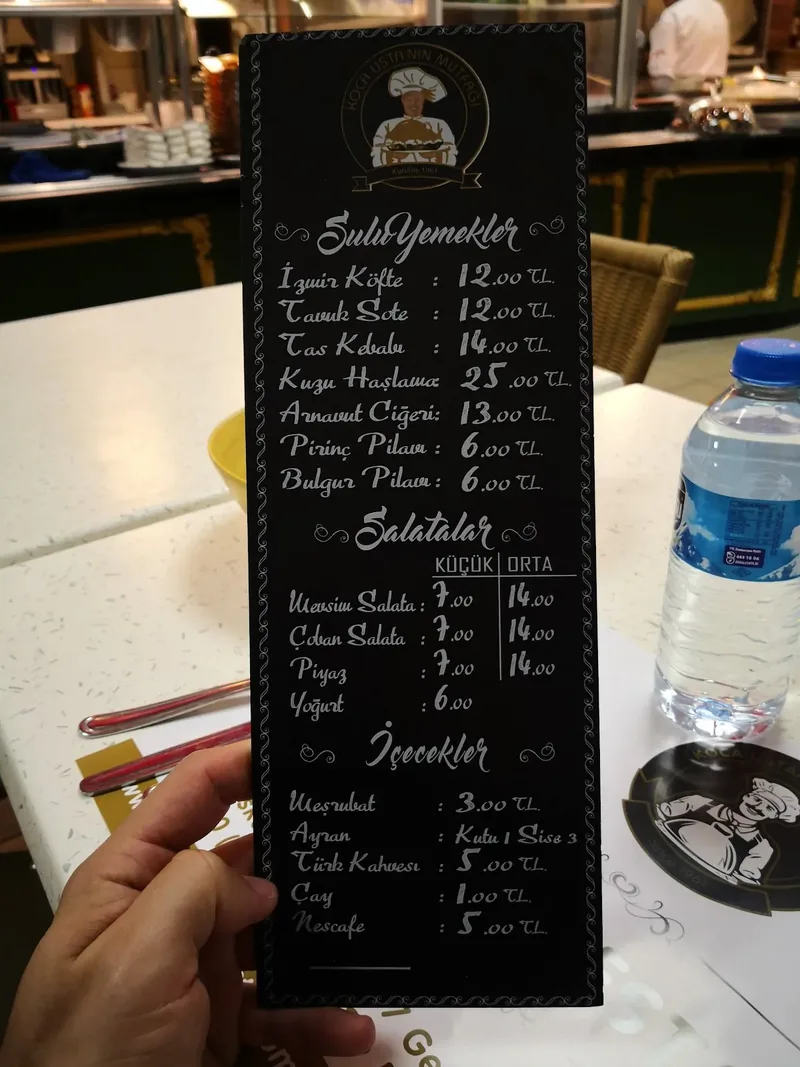 KOCA USTA'NIN MUTFAĞI
Sulu Yemekler
İzmir Köfte : 12.00 TL.
Tavuk Sote : 12.00 TL.
Tas Kebabı : 14.00 TL.
Kuzu Haşlama: 25.00 TL.
Arnavut Ciğeri: 13.00 TL.
Pirinç Pilavı : 6.00 TL.
Bulgur Pilavı : 6.00 TL.
Salatalar
KÜÇÜK ORTA
Mevsim Salata : 7.00 14.00
Çoban Salata : 7.00 14.00
Piyaz : 7.00 14.00
Yoğurt : 6.00
İçecekler
Meşrubat : 3.00 TL.
Ayran : Kutu 1 Sise 3
Türk Kahvesi : 5.00 TL.
Çay : 1.00 TL.
Nescafe : 5.00 TL.